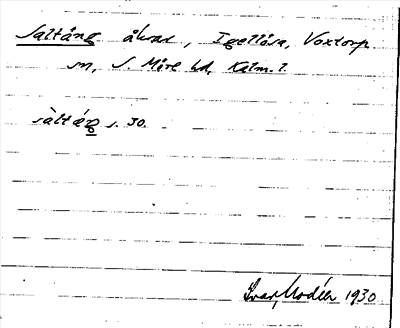 Saltäng åkrar, Igellösa, Voxtorp
sn, S. Möre hd, Kalm. l
sàltéŋ s. 30.
Ivar Modéer 1930